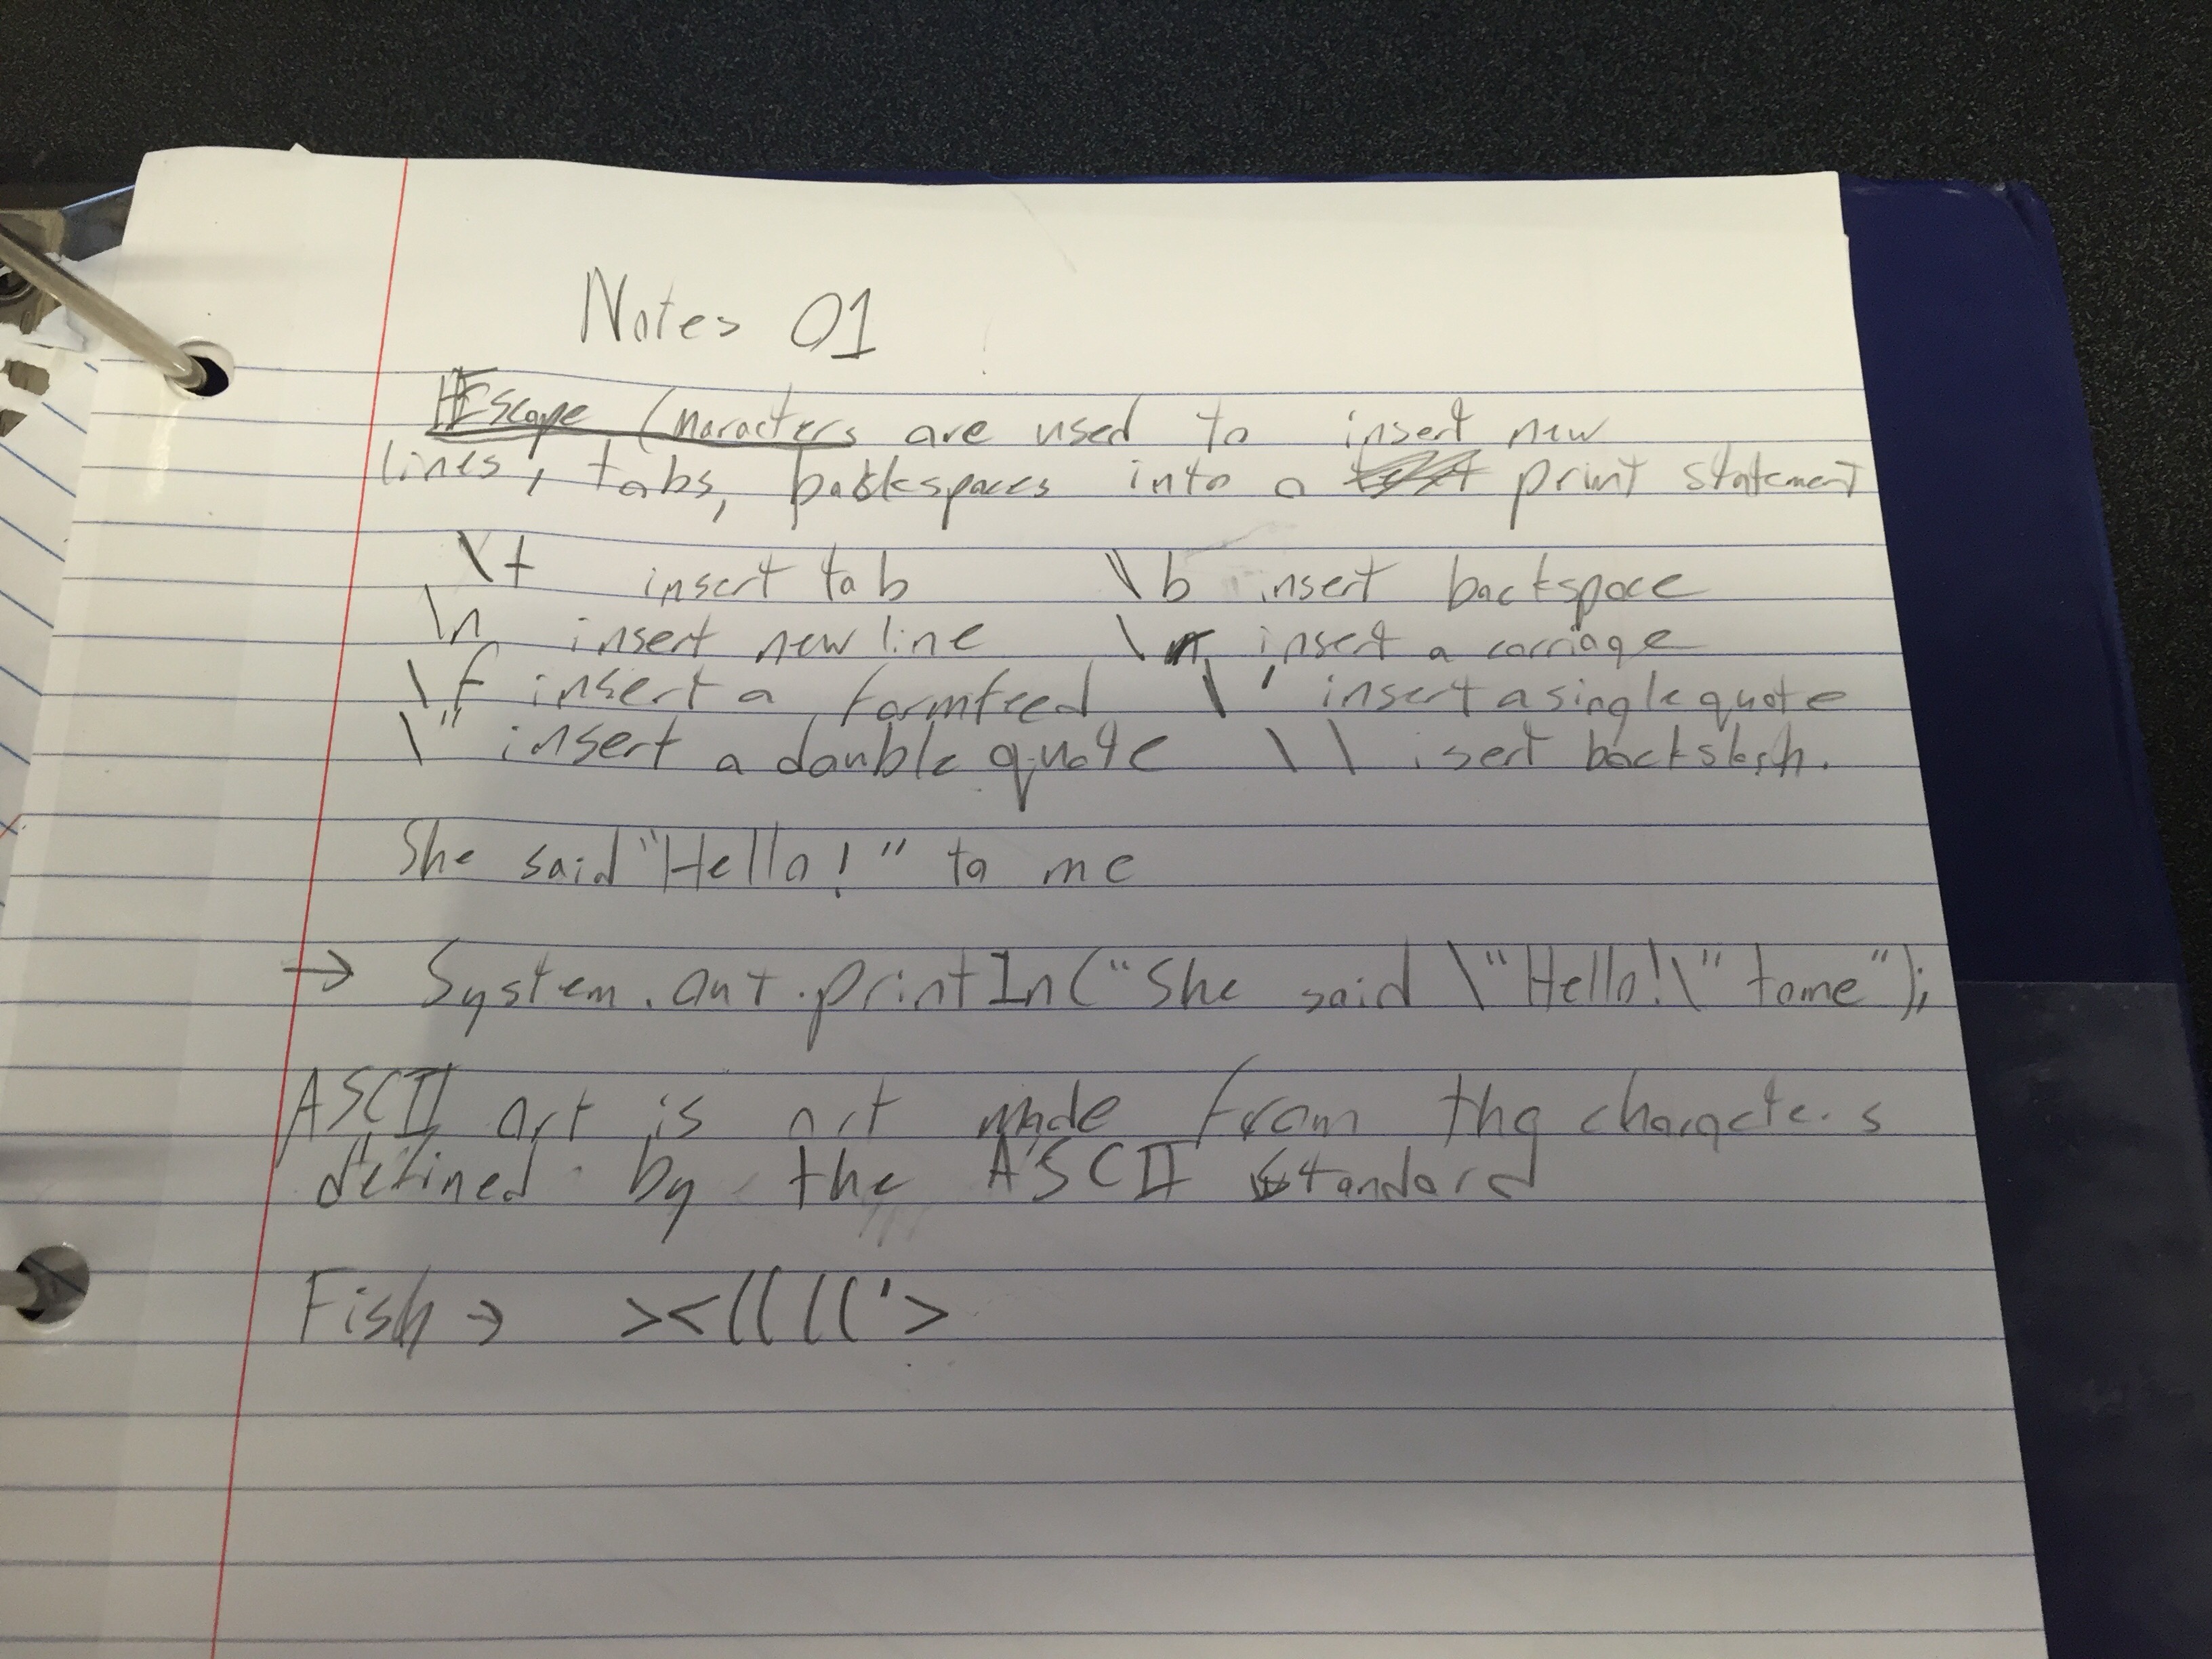 Notes 01
Escape Characters are used to insert new
lines, tabs, backspaces into a print statement
\t insert tab \b insert backspace
\n insert new line \r insert a carriage
\f insert a formfeed \' insert a single quote
\" insert a double quote \\ isert backslash.
She said "Hello!" to me
→ System.out.println("She said \"Hello!\" to me");
ASCII art is art made from the characters
defined by the ASCII standard
Fish → ><((((('>